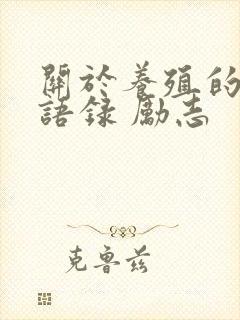 關於養殖的
語錄 勵志
克魯茲